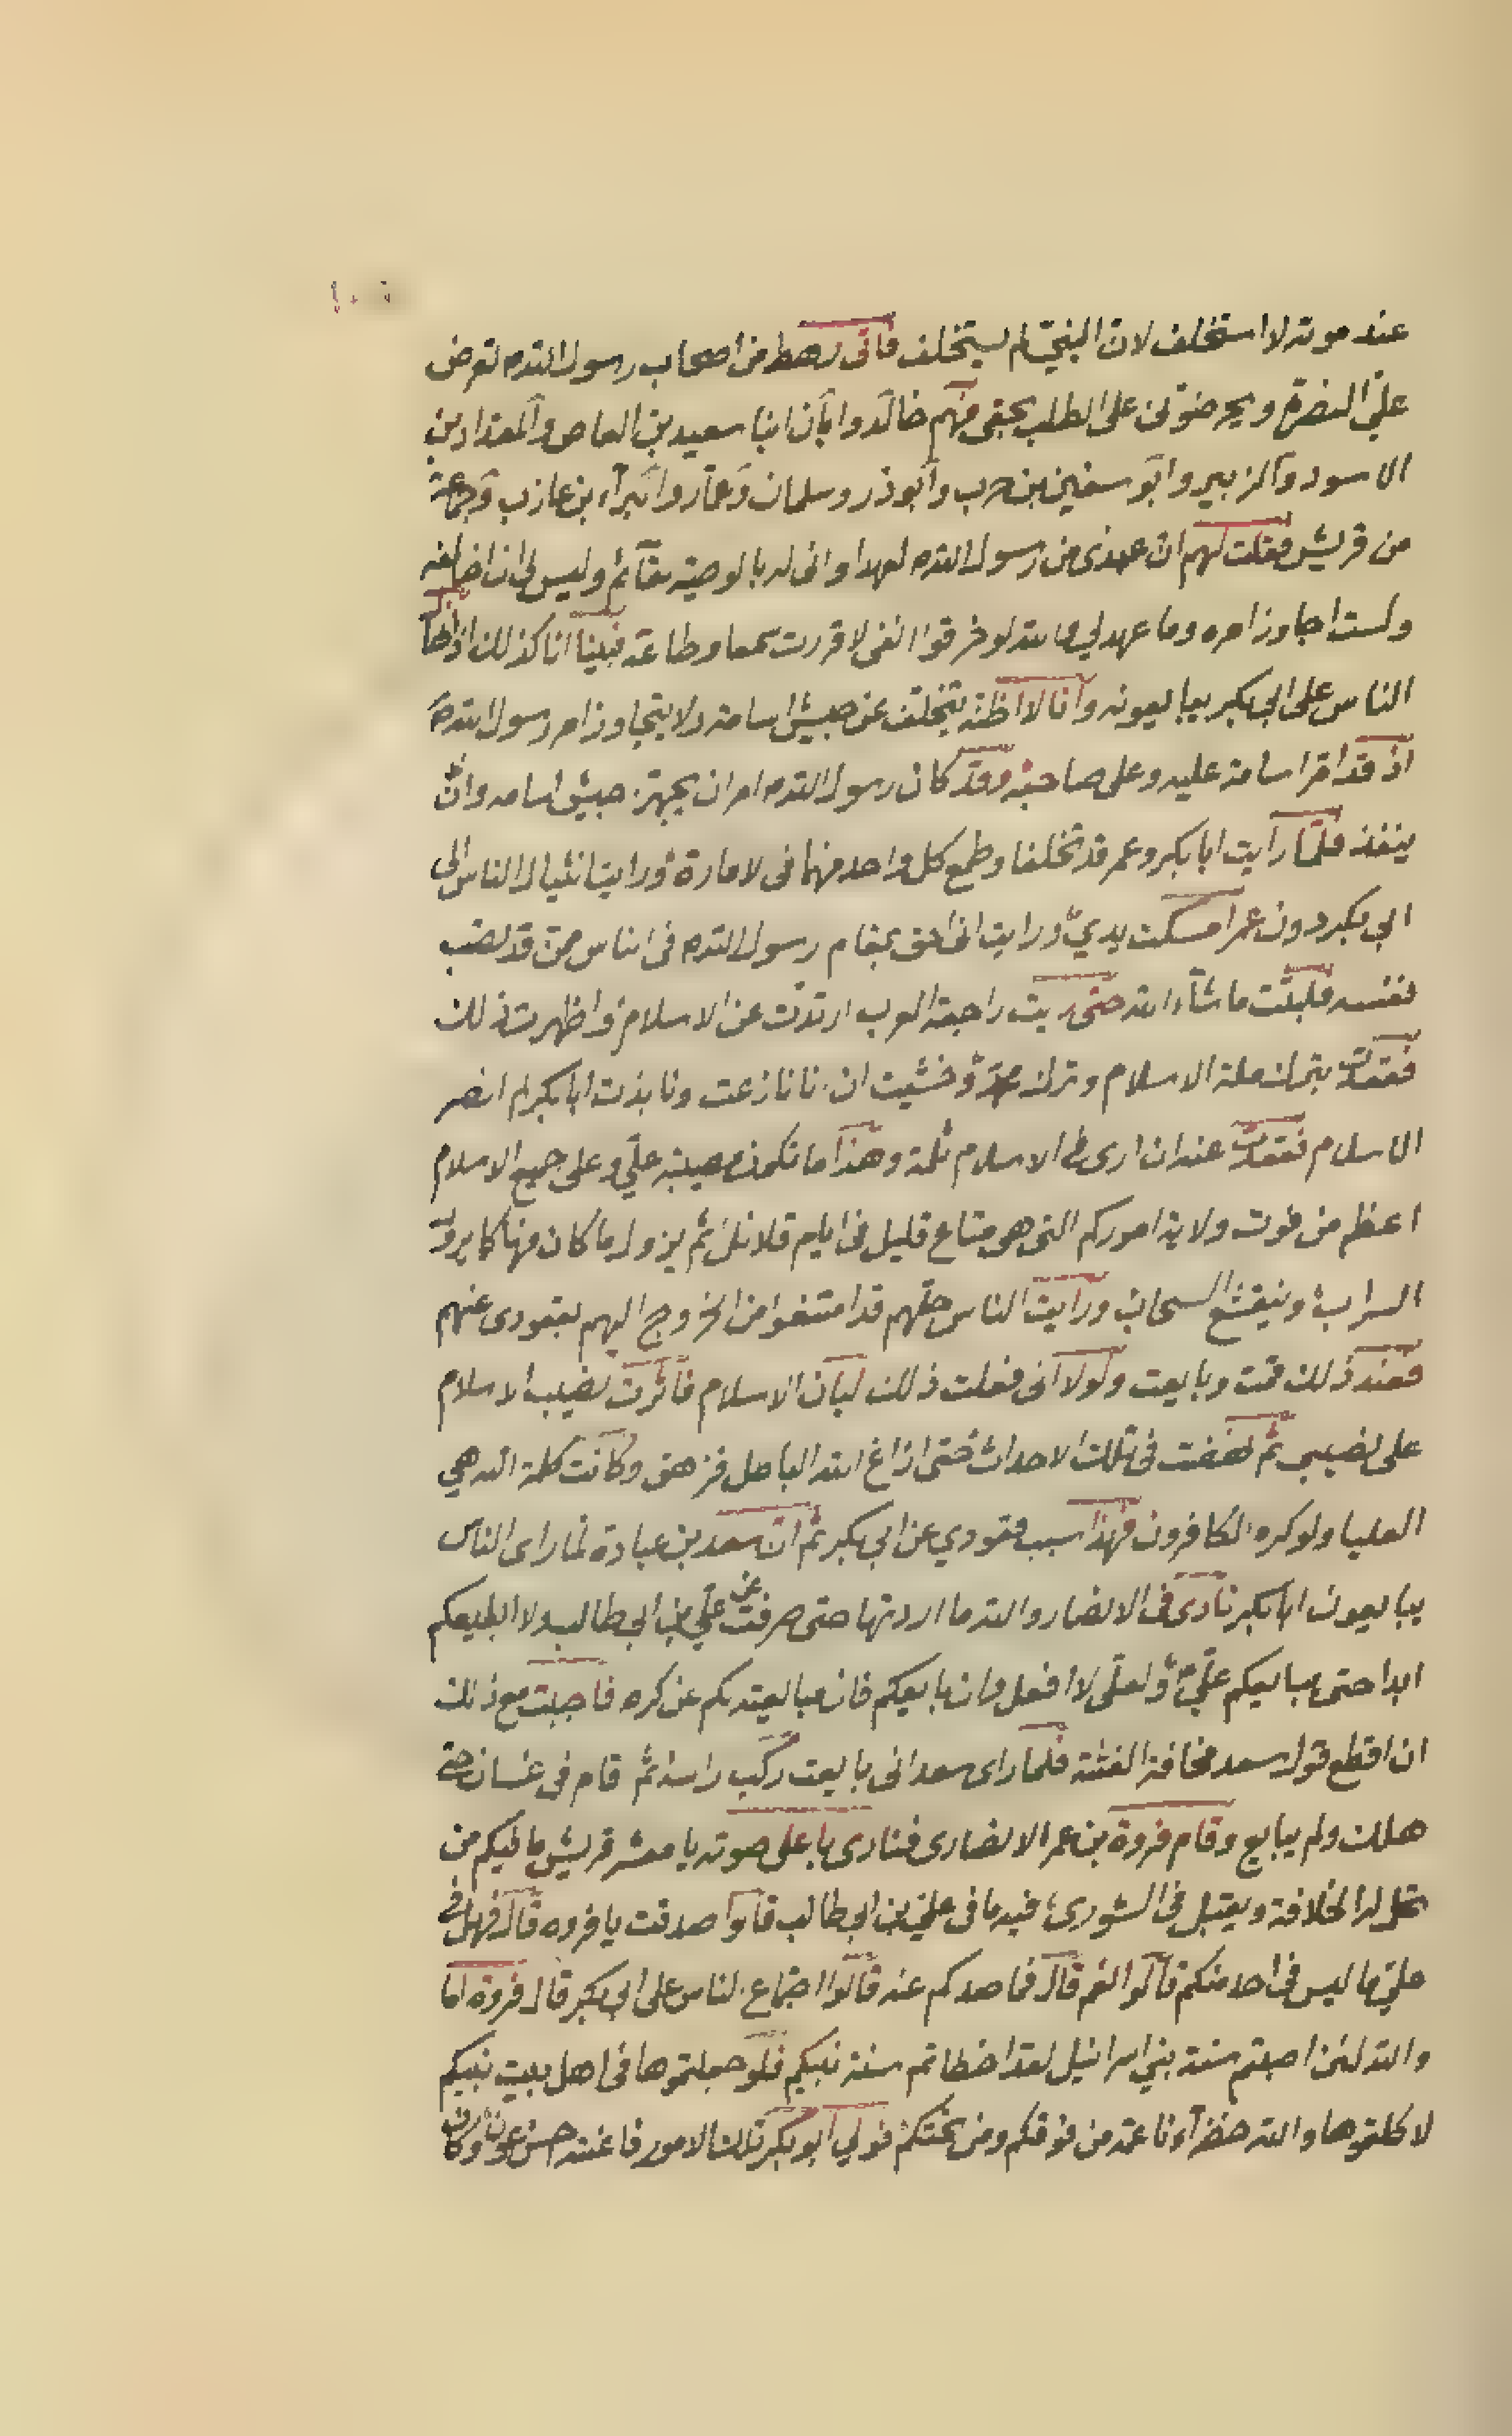 عند موته لا استخلف لان النبي لم يستخلف فاتى رهط من اصحاب رسول الله تعرض
علي النصرة ويحرضونى على الطلب بحقى منهم خالد وابان ابنا سعيد بن العاص والمقداد بن
الاسود والزبير وابو سفين بن حرب وابوذر وسلمان وعمار والبراء بن عازب وجماعة
من قريش فقلت لهم ان عندى من رسول الله لعهدا وانى له بالوصية لقائم وليس لى ان اخالفه
ولست اجاوز امره وما عهد لي فالله لو خرقوا انفى لاقررت سمعا وطاعة فبينا انا كذلك اذ
الناس على ابي بكر يبايعونه وانا لا اظنه يتخلف عن جيش اسامة ولا يتجاوز امر رسول الله
اذ قد اقر اسامة عليه وعلى صاحبه وقد كان رسول الله امر ان يجهز جيش اسامه وان
ينفذ فلما رايت ابا بكر وعمر قد تخلفا وطمع كل واحد منهما فى لامارة ورايت انثيال الناس الى
ابي بكر دون عمر امسكت يدي ورايت انى احق بمقام رسول الله فى الناس ممن قد نصب
نفسه فلبثت ما شاء الله حتى ريت راجعة العرب ارتدت عن الاسلام واظهرت ذلك
بترك ملة الاسلام وترك وخشيت ان انا نازعت ونابذت ابا بكر لم انصر
الاسلام عند ان ارى فى الاسلام ثلمة وهذا ما تكون مصيبته علي وعلى جميع الاسلام
اعظم من فوت ولاية اموركم التى هى متاع قليل فى ايام قلائل ثم يزول ما كان منها كما يزول
السراب وينقشع السحاب ورايت الناس قد امتنعوا من الخروج اليهم لقعودى عنهم
فعند ذلك قمت وبايعت ولولا انى فعلت ذلك لبان الاسلام فاثرت نصيب الاسلام
على نصيبي ثم نهضت فى تلك الاحداث حتى ازاغ الله الباطل فزهق وكانت كلمة الله هي
العليا ولو كره الكافرون فهذا سبب قعودي عن ابي بكر ثم ان سعد بن عبادة لما راى الناس
يبايعون ابا بكر نادى فى الانصار والله ما اردتها حتى صرفت عن علي بن ابي طالب ولا ابايعكم
ابدا حتى يبايعكم علي ولعلى لا افعل وان بايعكم فان مبايعته لكم عن كره فاجبت مع ذلك
ان اقطع قول سعد مخافة الفتنة فلما راى سعد انى بايعت ركب راسه ثم قام فى غسان حتى
هلك ولم يبايع وقام فروة بن عمر الانصارى فنادى باعلى صوته يا معشر قريش ما فيكم من
تحل له الخلافة ويقبل فى الشورى فيه ما فى علي بن ابي طالب قالوا صدقت يا فروه قال فهل فى
علي ما ليس فى احد منكم قالوا نعم قال فما صدكم عنه قالوا اجتماع الناس على ابي بكر قال فروة اما
والله لئن اصبتم سنة بني اسرائيل لقد اخطاتم سنة نبيكم فلو جعلتموها فى اهل بيت نبيكم
لاكلتموها والله خضراء ناعمة من فوقكم ومن تحتكم فولي ابو بكر تلك الامور فاعنته حسن عون وكان